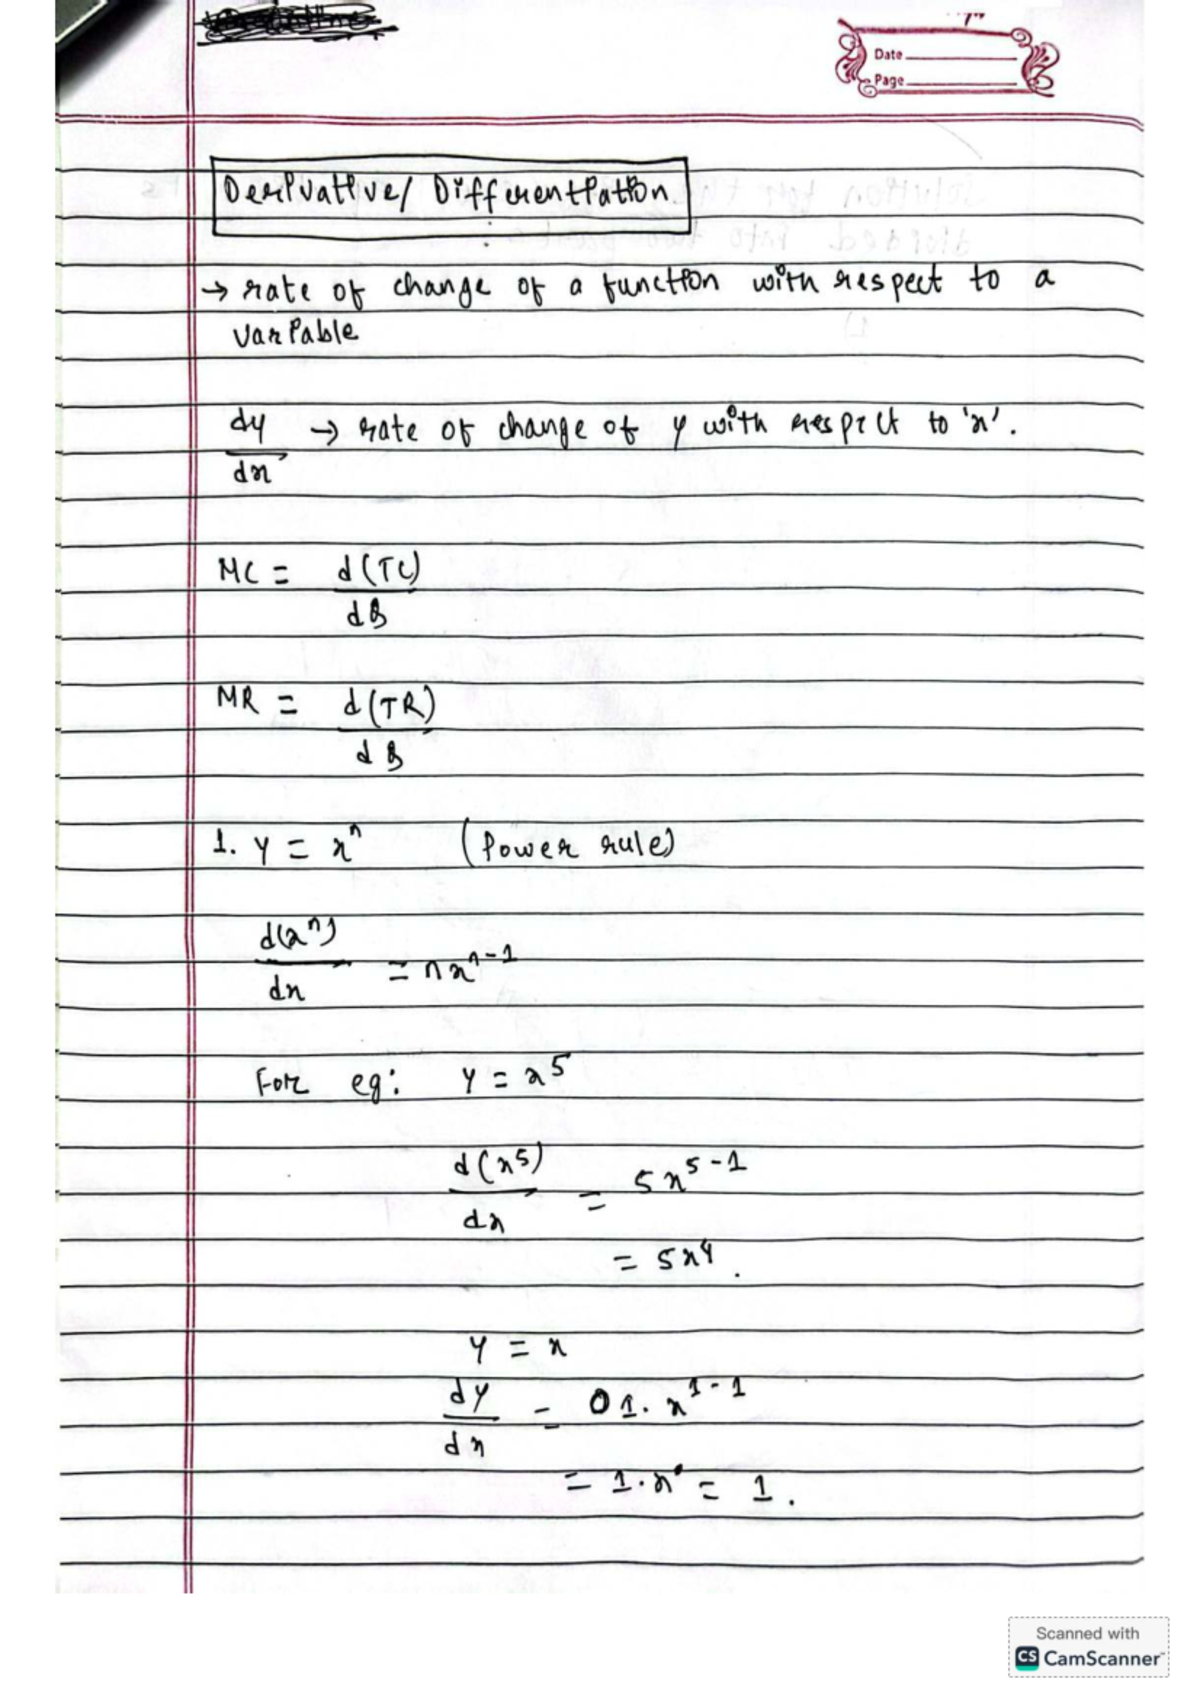 Date
Page
Derivative/ Differentiation
:
→ rate of change of a function with respect to a
variable
dy
dx → rate of change of y with respect to 'x'.
MC = d(TC)
dQ
MR = d(TR)
dQ
1. y = xⁿ (Power rule)
d(xⁿ)
dx = nxⁿ⁻¹
For eg: y = x⁵
d(x⁵)
dx = 5x⁵⁻¹
= 5x⁴.
y = x
dy
dx = 0 1. x¹⁻¹
= 1·x⁰ = 1.
Scanned with
CS CamScanner